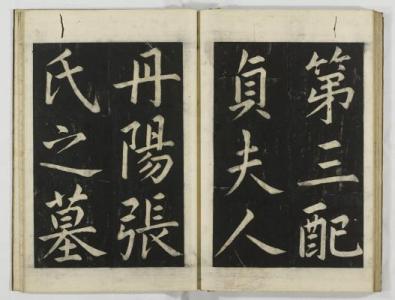 第三配
貞夫人
丹陽張
氏之墓